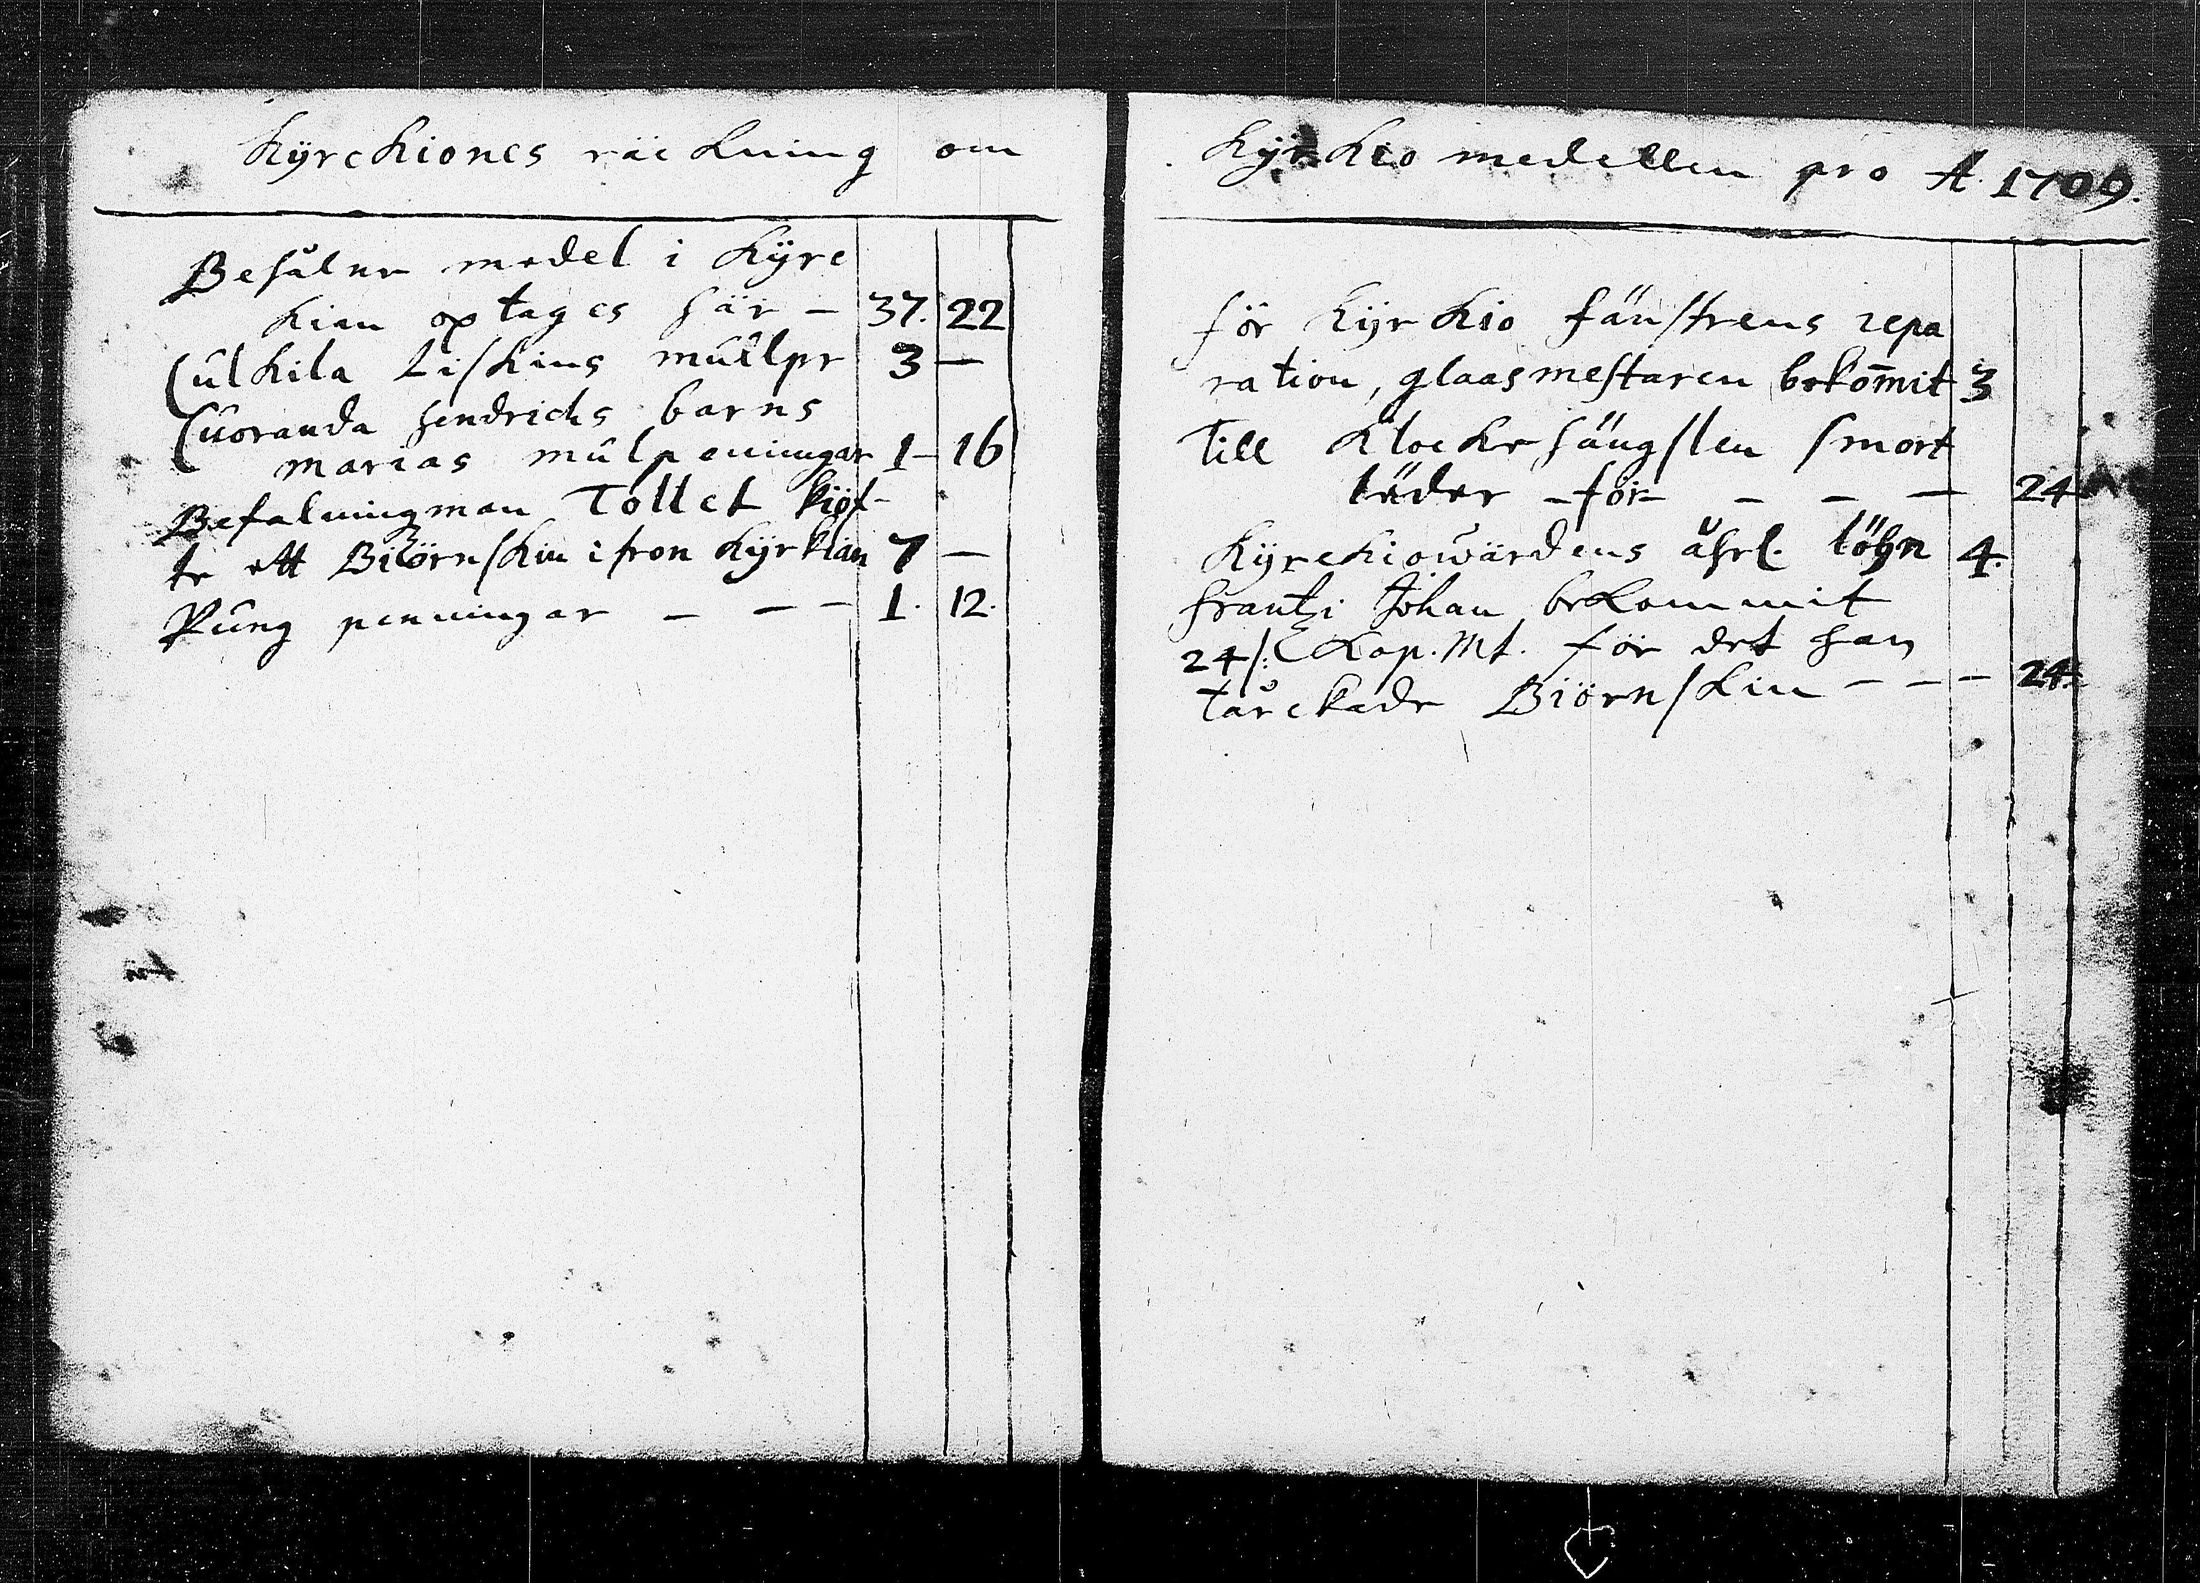 Kyrckiones räckning om
Behålne medel i Kyrc
kian optages här – 37. 22
Ulkila Liskins mullpr 3 –
Uoranda Hendrichs barns
marias mulpeningar 1 – 16
Befalningman Tollet kiöf-
te ett Biörnskin ifron Kyrkian 7 –
Pung penningar – – – 1. 12.
Kyrkio medellen pro A. 1709.
för Kyrkio fänstrens repa
ration, glaasmestaren bekom̄it 3
Till Klocke hängslen smort
läder – för – – – 24
Kyrckiowärdens åhrl. löhn 4.
Frantzi Johan bekommit
24/: Kop. Mt. för det han
tårckade Biörnskin – – – 24.